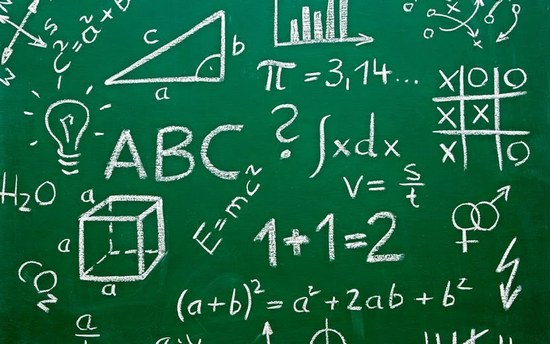 c² = a² + b
c
b
a
π = 3,14...
X O O
X X
X O
ABC
?
∫xdx
v = s/t
H₂O
a
a
a
E=mc²
1+1=2
CO₂
(a+b)² = a² + 2ab + b²
a